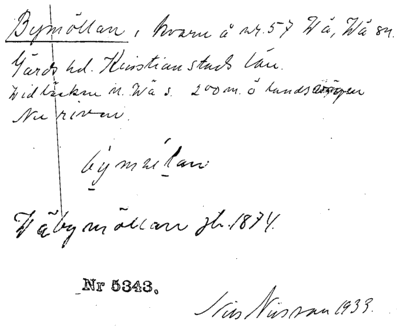 Bymöllan, kvarn å nr. 57 Vä, Vä sn.
Gärds hd. Kristianstads län.
Vid bäcken n. Vä s. 200 m. ö landsvägen
Nu riven.
Väbymöllan jb. 1874.
Nr 5343.
Nils Nilsson 1933.